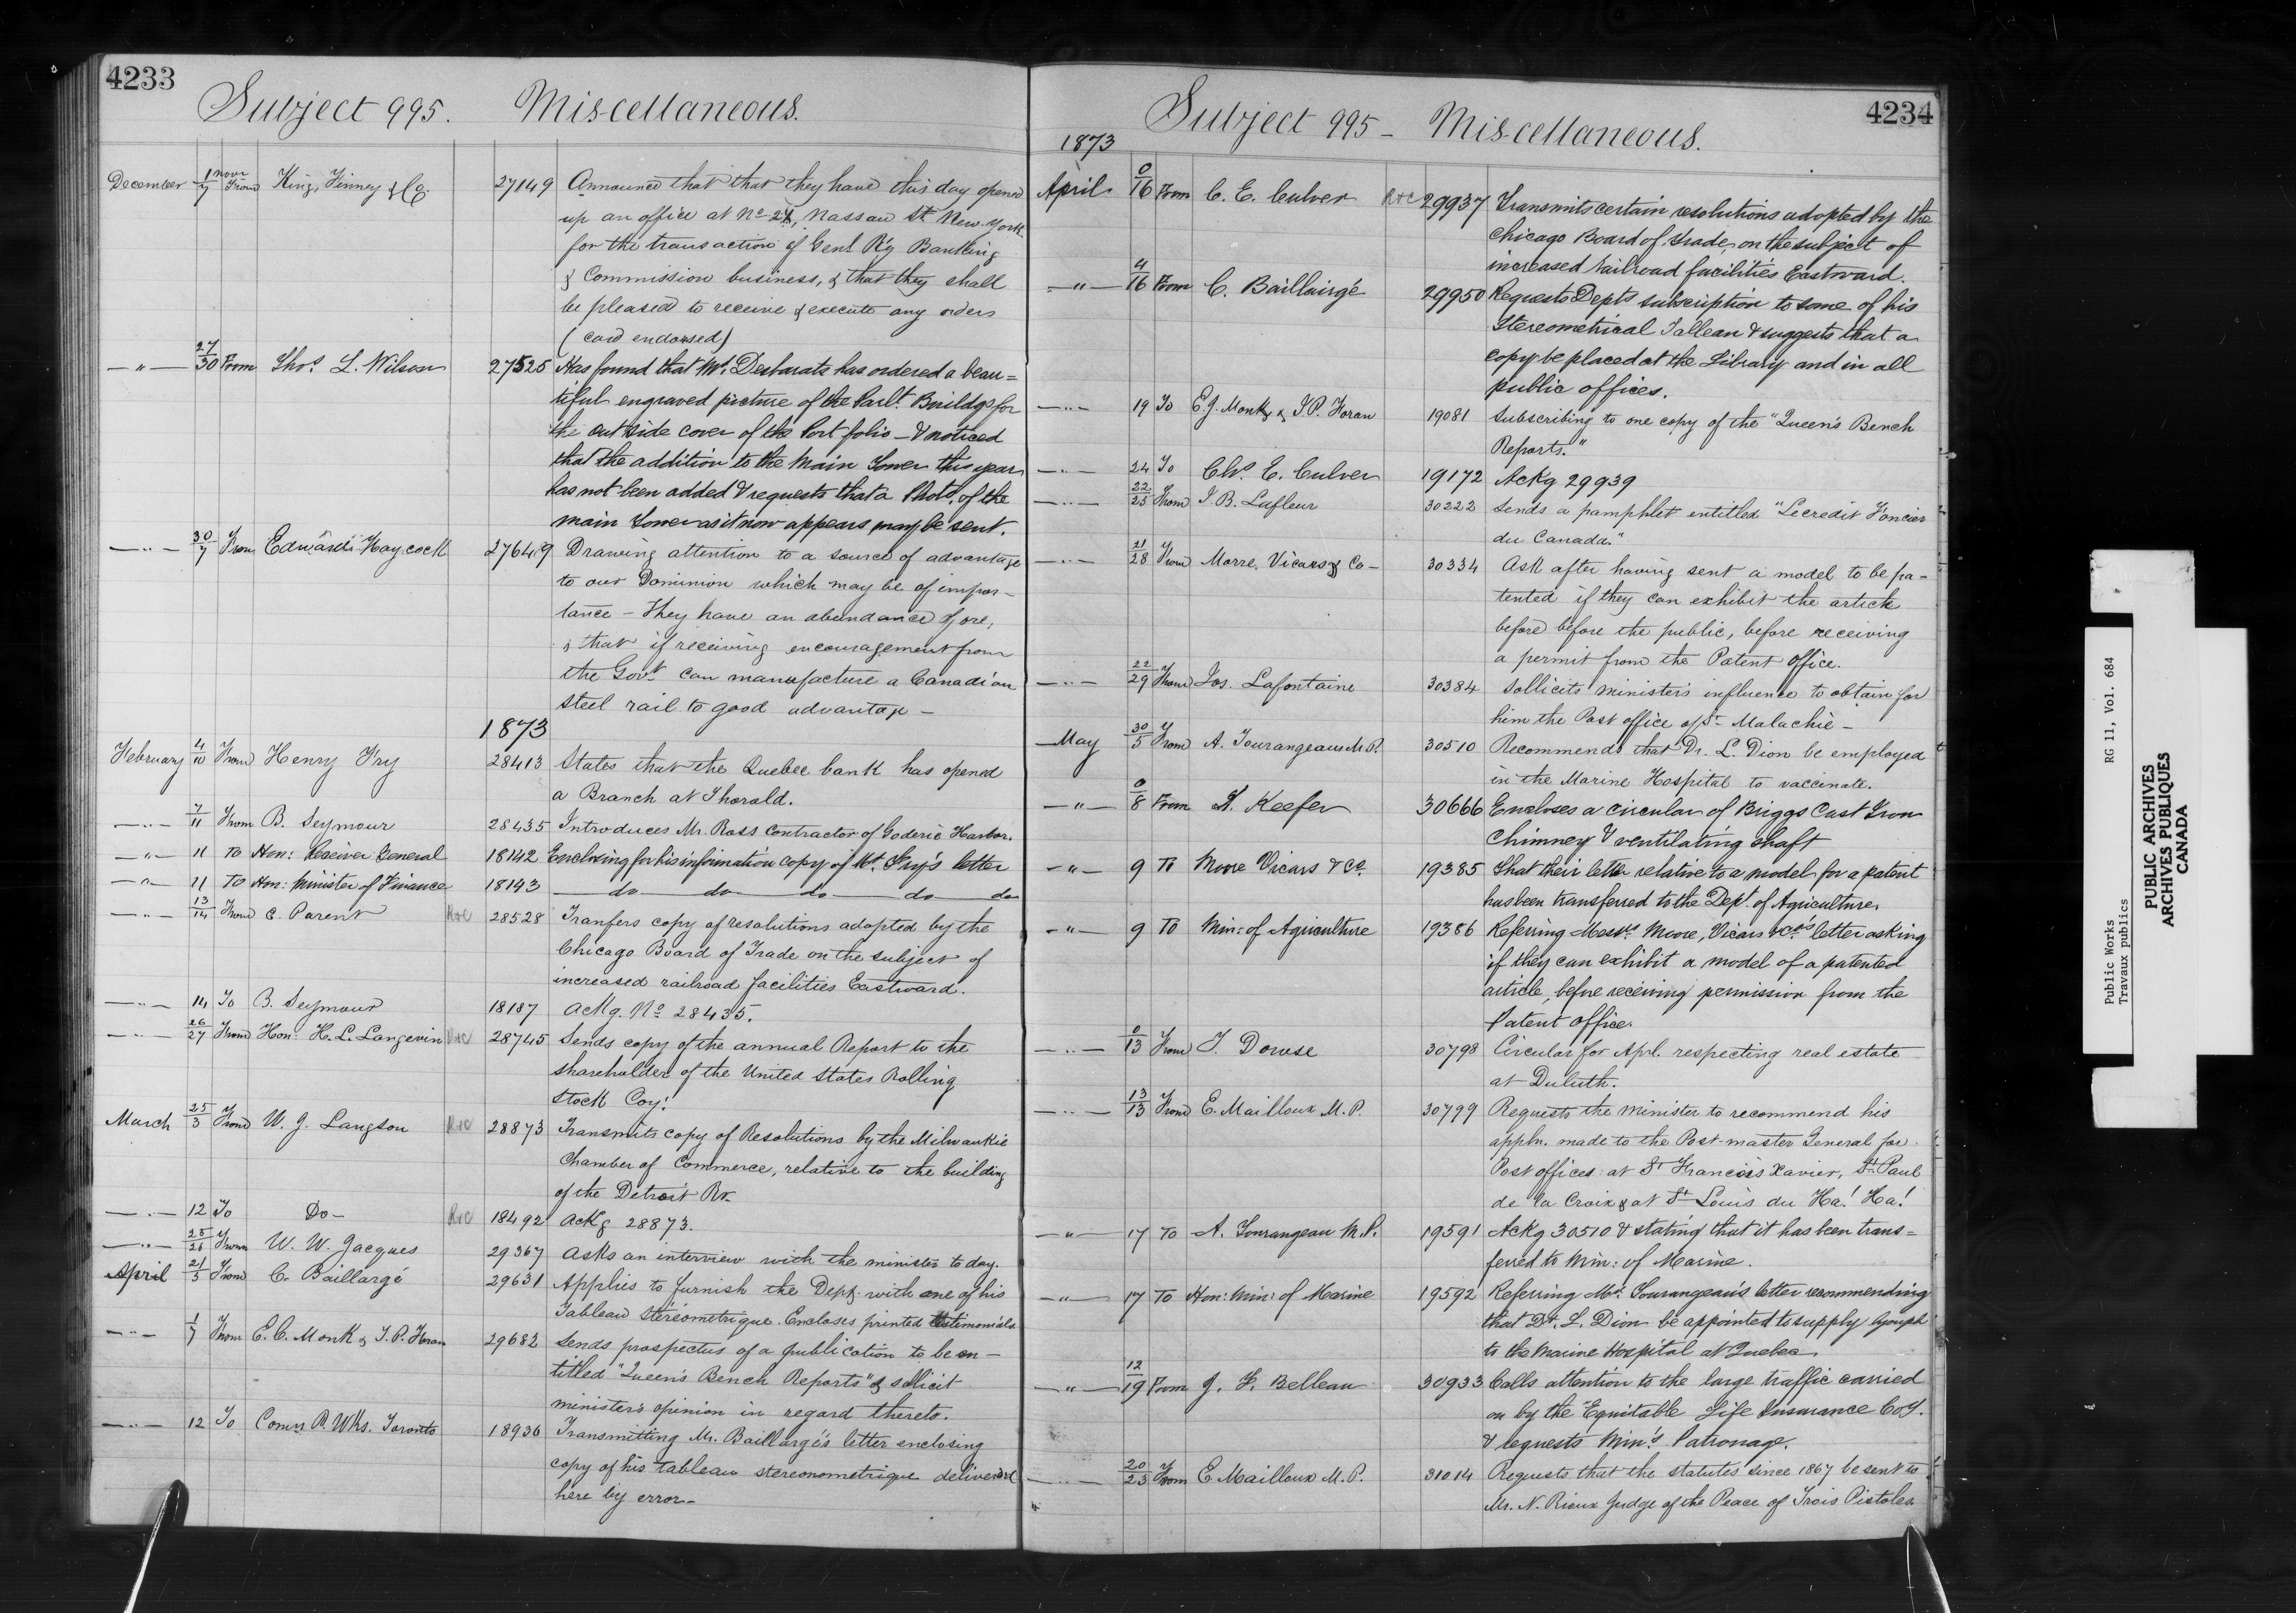 4233
Subject 995. Miscellaneous.
December 1 novr/7 From King, Finney & Co. 27149 Announce that that they have this day opened
up an office at No 28, Nassau St New-York
for the transaction of Genl R'y Banking
& Commission business, & that they shall
be pleased to receive & execute any orders
(card endorsed)
—"— 27/30 From Thos. L. Wilson 27525 Has found that Mr. Desbarats has ordered a beau=
tiful engraved picture of the Parlt. Buildgs for
the out side cover of the Port folio — & noticed
that the addition to the Main Tower this year
has not been added & requests that a Photo. of the
main Tower as it now appears may be sent.
—"— 30/7 From Edward Haycock 27649 Drawing attention to a source of advantage
to our Dominion which may be of impor-
tance - They have an abundance of ore,
& that if receiving encouragement from
the Govt. can manufacture a Canadian
steel rail to good advantage —
1873
February 4/10 From Henry Fry 28413 States that the Quebec bank has opened
a Branch at Thorald.
—"— 7/11 From B. Seymour 28435 Introduces Mr. Ross contractor of Goderic Harbor.
—"— 11 To Hon: Receiver General 18142 Enclosing for his information copy of Mr. Fry's letter
—"— 11 To Hon: Minister of Finance 18143 — do — do — do — do — do
—"— 13/14 From C. Parent R&C 28528 Tranfers copy of resolutions adopted by the
Chicago Board of Trade on the subject of
increased railroad facilities Eastward.
—"— 14 To B. Seymour 18187 Ackg. No 28435.
—"— 26/27 From Hon: H. L. Langevin R&C 28745 Sends copy of the annual Report to the
shareholder of the United States Rolling
Stock Coy.
March 25/3 From W. J. Langson R&C 28873 Transmits copy of Resolutions by the Milwaukie
Chamber of Commerce, relative to the building
of the Detroit Rr.
—"— 12 To Do — R&C 18492 Ackg 28873.
—"— 25/26 From W. W. Jacques 29367 Asks an interview with the minister to day.
April 21/3 From C. Baillargé 29631 Applies to furnish the Dept. with one of his
Tableau Stéréometrique. Encloses printed testimonials
—"— 1/7 From E. C. Monk & T. P. Foran 29682 Sends prospectus of a publication to be en-
titled "Queen's Bench Reports" & sollicit
minister's opinion in regard thereto.
—"— 12 To Comrs P. Wks. Toronto 18936 Transmitting Mr. Baillargé's letter enclosing
copy of his tableau stereonometrique delivered
here by error—
4234
Subject 995 - Miscellaneous.
1873
April 0/16 From C. E. Culver R&C 29937 Transmits certain resolutions adopted by the
Chicago Board of Trade, on the subject of
increased railroad facilities Eastward.
—"— 4/16 From C. Baillairgé 29950 Requests Depts subscription to some of his
Stereometrical Tableau & suggests that a
copy be placed at the Library and in all
public offices.
—"— 19 To E. J. Monk & T. P. Foran 19081 Subscribing to one copy of the "Queen's Bench
Reports."
—"— 24 To Chs. E. Culver 19172 Ackg 29939
—"— 22/25 From J. B. Lafleur 30222 Sends a pamphlet entitled "Le credit Foncier
du Canada."
—"— 21/28 From Morre, Vicars & Co — 30334 Ask after having sent a model to be pa-
tented if they can exhibit the article
before before the public, before receiving
a permit from the Patent Office.
—"— 22/29 From Jos. Lafontaine 30384 Sollicits minister's influence to obtain for
him the Post office of St. Malachie —
May 30/5 From A. Tourangeau M.P. 30510 Recommends that Dr. L. Dion be employed
in the Marine Hospital to vaccinate.
—"— 0/8 From S. Keefer 30666 Encloses a circular of Briggs Cast Iron
Chimney & ventilating shaft
—"— 9 To Moore Vicars & Co. 19385 That their letter relative to a model for a patent
has been transferred to the Dept. of Agriculture.
—"— 9 To Min: of Agriculture 19386 Referring Messrs Moore, Vicars & Co's letter asking
if they can exhibit a model of a patented
article, before receiving permission from the
Patent office.
—"— 0/13 From T. Dowse 30798 Circular for Apl. respecting real estate
at Duluth.
—"— 13/13 From E. Mailloux M.P. 30799 Requests the minister to recommend his
appln. made to the Post-master General for
Post offices at St Francois Xavier, St. Paul
de la Croix & at St Louis du Ha! Ha!
—"— 17 To A. Tourangeau M.P. 19591 Ackg 30510 & stating that it has been trans=
ferred to Min: of Marine.
—"— 17 To Hon: Min: of Marine 19592 Referring Mr. Tourangeau's letter recommending
that Dr. L. Dion be appointed to supply lymph
to the Marine Hospital at Quebec.
—"— 12/19 From J. F. Belleau 30933 Calls attention to the large traffic carried
on by the Equitable Life Insurance Coy.
& requests Min's Patronage.
—"— 20/23 From E. Mailloux M.P. 31014 Requests that the statutes since 1867 be sent to
Mr. N. Rioux Judge of the Peace of Trois Pistoles
Public Works RG 11, Vol. 684
Travaux publics
PUBLIC ARCHIVES
ARCHIVES PUBLIQUES
CANADA